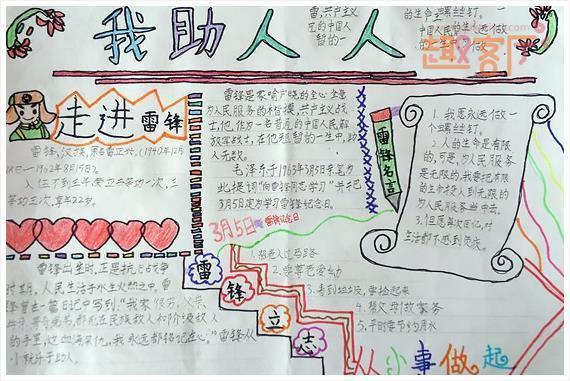 我助人人
雷,共产主义
无的中国人
暂的一
的生命
中国人民
的一生中
趣客网
走进雷锋
雷锋,汉族,原名雷正兴,(1940年12月
18日—1962年8月15日)。
入伍不到三年荣立二等功一次,三
等功三次,享年22岁。
雷锋是家喻户晓的全心全意
为人民服务的楷模,共产主义战
士,他,作为一名普通的中国人民解
放军战士,在他短暂的一生中,助
人无数。
毛泽东于1963年3月5日亲笔为
此题词"向雷锋同志学习"并把
3月5日定为学习雷锋纪念日。
雷锋名言
1.我愿永远做一
个螺丝钉。
2.人的生命是有限
的,可是,为人民服务
是无限的,我要把有限
的生命投入到无限的
为人民服务当中去。
3.但愿每次回忆,对
生活都不感到负疚。
3月5日
雷锋纪念日
雷锋出生时,正是抗日战争
时期,人民生活于水生火热之中,雷
锋曾在一篇日记中写到,"我家
的手里,这血海深仇,我永远都铭记在心。"雷锋从
小就乐于助人。
雷锋立志
1.搀老人过马路
2.学著包爱幼
3.看到垃圾,要捡起来
4.帮父母做家务
5.平时要节约用水
从小事做起